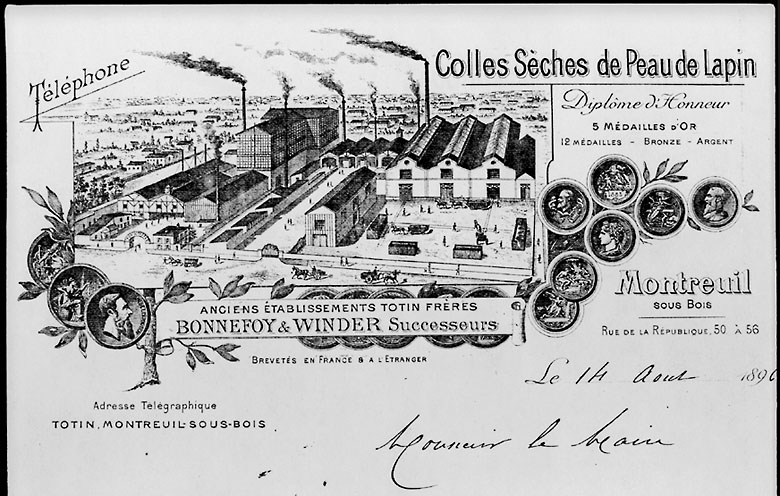 Téléphone
Colles Sèches de Peau de Lapin
Diplôme d'Honneur
5 MÉDAILLES D'OR
12 MÉDAILLES - BRONZE - ARGENT
Montreuil
SOUS BOIS
RUE DE LA RÉPUBLIQUE, 50 À 56
ANCIENS ÉTABLISSEMENTS TOTIN FRÈRES
BONNEFOY & WINDER Successeurs
BREVETÉS EN FRANCE & A L'ETRANGER
Le 14 Aout 1896
Adresse Télégraphique
TOTIN, MONTREUIL-SOUS-BOIS
Monsieur le Maire